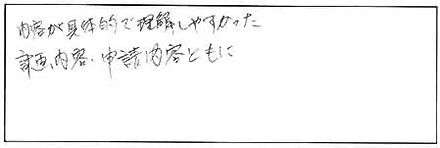 内容が具体的で理解しやすかった
計画、内容、申請内容ともに